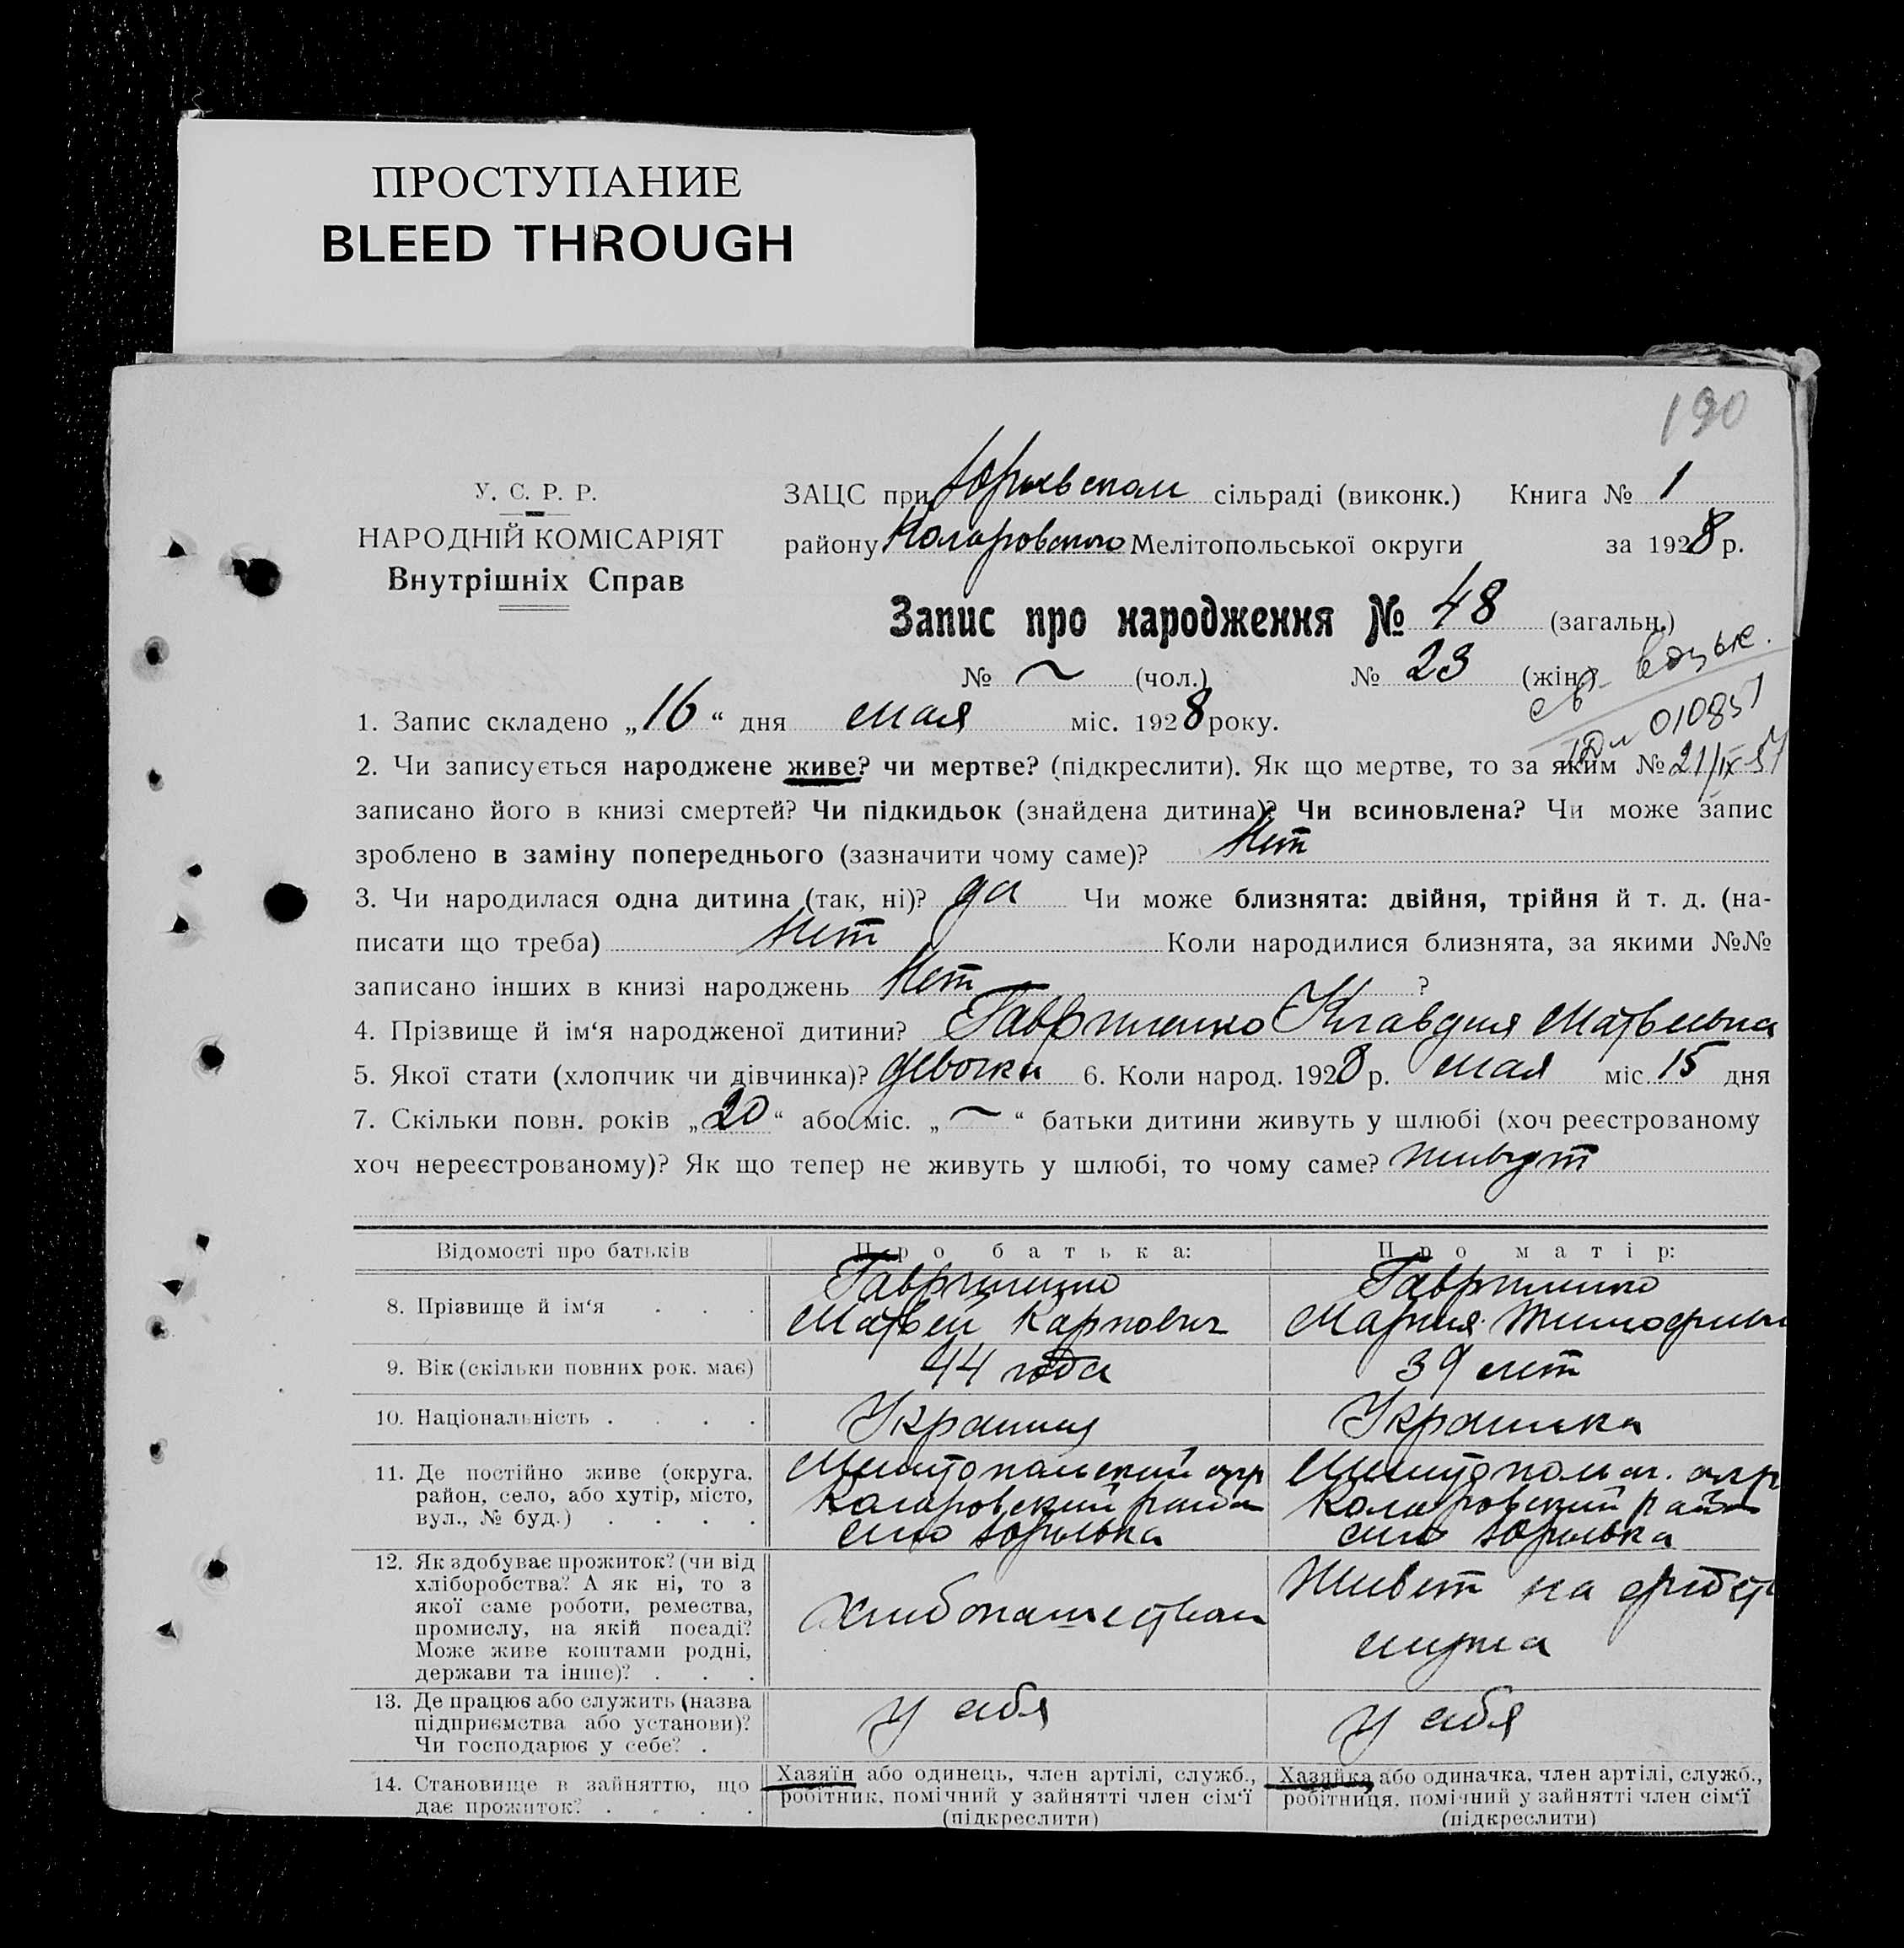 ПРОСТУПАНИЕ
BLEED THROUGH
190
У. С. Р. Р.
НАРОДНІЙ КОМІСАРІЯТ
Внутрішніх Справ
ЗАЦС при Юрьевском сільраді (виконк.) Книга № 1
району Коларовского Мелітопольської округи за 1928 р.
Запис про народження № 48 (загальн.)
№ ~ (чол.) № 23 (жін.)
010851
21/IX-57
1. Запис складено „16“ дня мая міс. 1928 року.
2. Чи записується народжене живе? чи мертве? (підкреслити). Як що мертве, то за яким №
записано його в книзі смертей? Чи підкидьок (знайдена дитина)? Чи всиновлена? Чи може запис
зроблено в заміну попереднього (зазначити чому саме)? Нет
3. Чи народилася одна дитина (так, ні)? да Чи може близнята: двійня, трійня й т. д. (на-
писати що треба) Нет Коли народилися близнята, за якими №№
записано інших в книзі народжень Нет ?
4. Прізвище й ім‘я народженої дитини? Гавриленко Клавдия Матвеевна
5. Якої стати (хлопчик чи дівчинка)? девочка 6. Коли народ. 1928 р. мая міс. 15 дня
7. Скільки повн. років „20“ або міс. „~“ батьки дитини живуть у шлюбі (хоч реєстрованому
хоч нереєстрованому)? Як що тепер не живуть у шлюбі, то чому саме? живут
Відомості про батьків Про батька: Про матір:
8. Прізвище й ім‘я . . . Гавриленко Матвей Карпович Гавриленко Мария Тимофеевн
9. Вік (скільки повних рок. має) 44 года 39 лет
10. Національність . . . . Украинец Украинка
11. Де постійно живе (округа, район, село, або хутір, місто, вул., № буд.) . . . .
Мелитопольский окр Коларовский район село Юрьевка
Мелитопольск. окр Коларовский район село Юрьевка
12. Як здобуває прожиток? (чи від хліборобства? А як ні, то з якої саме роботи, ремества, промислу, на якій посаді? Може живе коштами родні, держави та інше)? . . .
Хлебопашеством
Живет на средст мужа
13. Де працює або служить (назва підприємства або установи)? Чи господарює у себе? .
у себя
у себя
14. Становище в зайняттю, що дає прожиток? . . . .
Хазяїн або одинець, член артілі, служб., робітник, помічний у зайнятті член сім‘ї (підкреслити)
Хазяйка або одиначка, член артілі, служб., робітниця, помічний у зайнятті член сім‘ї (підкреслити)